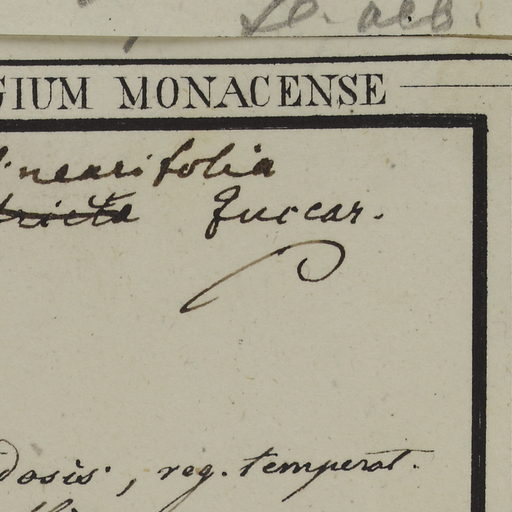 fl. alb.
GIUM MONACENSE
linearifolia
stricta Zuccar.
dosis, reg. temperat.